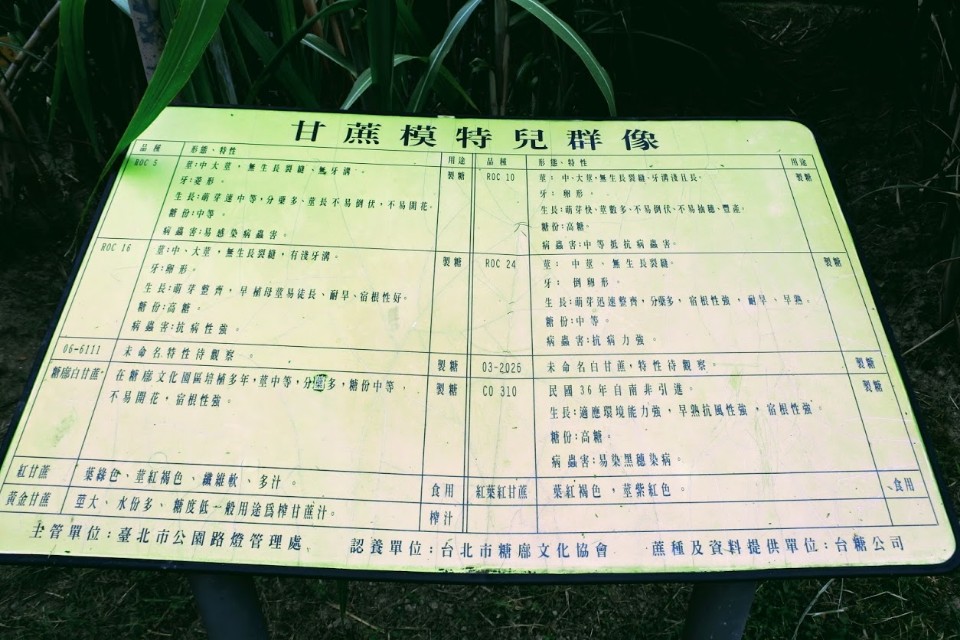 甘蔗模特兒群像
品種 形態、特性 用途
ROC 5 製糖
莖:中大莖,無生長裂縫、無牙溝。
牙:菱形。
生長:萌芽速中等,分蘗多、莖長不易倒伏,不易開花。
糖份:中等。
病蟲害:易感染病蟲害。
ROC 16 製糖
莖:中、大莖,無生長裂縫,有淺牙溝。
牙:卵形。
生長:萌芽整齊,早植母莖易徒長、耐旱、宿根性好。
糖份:高糖。
病蟲害:抗病性強。
06-6111 未命名特性待觀察。 製糖
糖廍白甘蔗 製糖
在糖廍文化園區培植多年,莖中等,分蘗多,糖份中等,
不易開花,宿根性強。
紅甘蔗 葉綠色、莖紅褐色、纖維軟、多汁。 食用
黃金甘蔗 莖大、水份多、糖度低一般用途為榨甘蔗汁。 榨汁
品種 形態、特性 用途
ROC 10 製糖
莖:中、大莖,無生長裂縫、牙溝淺且長。
牙:卵形。
生長:萌芽快、莖數多、不易倒伏、不易抽穗、豐產。
糖份:高糖。
病蟲害:中等抵抗病蟲害。
ROC 24 製糖
莖:中莖。無生長裂縫。
牙:倒卵形。
生長:萌芽迅速整齊,分蘗多,宿根性強,耐旱、早熟。
糖份:中等。
病蟲害:抗病力強。
03-2026 未命名白甘蔗,特性待觀察。 製糖
CO 310 製糖
民國36年自南非引進。
生長:適應環境能力強,早熟抗風性強,宿根性強。
糖份:高糖。
病蟲害:易染黑穗染病。
紅葉紅甘蔗 葉紅褐色,莖紫紅色。 食用
主管單位:臺北市公園路燈管理處 認養單位:台北市糖廍文化協會 蔗種及資料提供單位:台糖公司